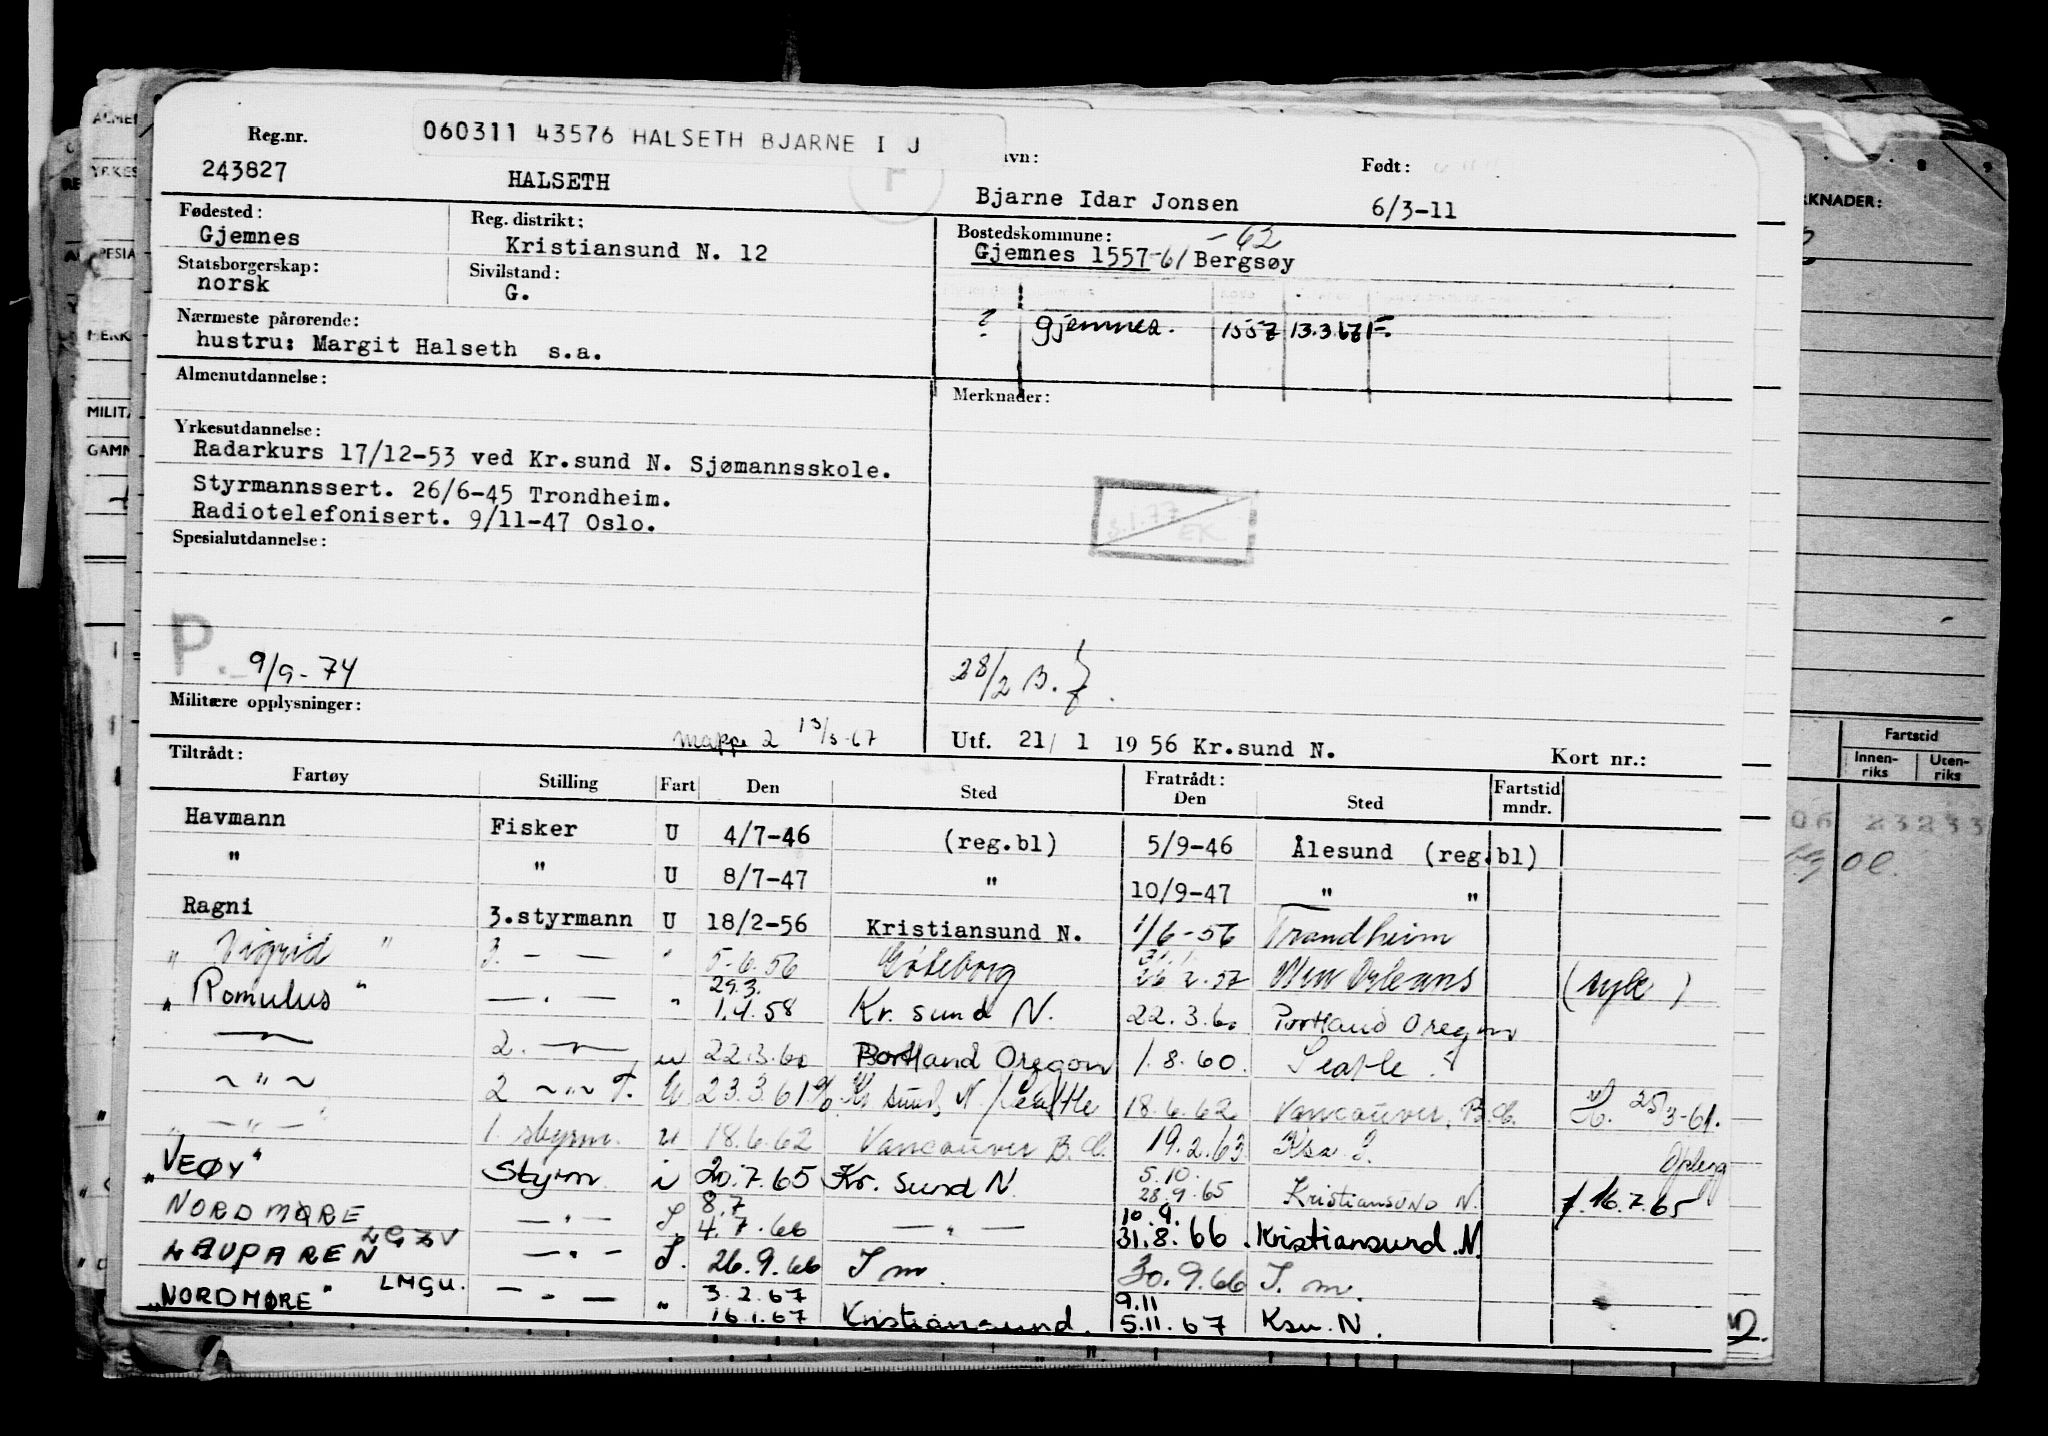 060311 43576 HALSETH BJARNE I J
Reg.nr. Født:
243827 HALSETH Bjarne Idar Jonsen 6/3-11
Fødested: Reg. distrikt: Bostedskommune: -62
Gjemnes Kristiansund N. 12 Gjemnes 1557-61 Bergsøy
Statsborgerskap: Sivilstand:
norsk G.
Nærmeste pårørende: ? Gjemnes. 1557 13.3.67 F.
hustru: Margit Halseth s.a.
Almenutdannelse: Merknader:
Yrkesutdannelse:
Radarkurs 17/12-53 ved Kr.sund N. Sjømannsskole.
Styrmannssert. 26/6-45 Trondheim.
Radiotelefonisert. 9/11-47 Oslo.
3.1.77 EK
Spesialutdannelse:
P. 9/9-74 28/2 B.
Militære opplysninger:
mappe 2 13/3-67 Utf. 21/ 1 19 56 Kr.sund N. Kort nr.:
Tiltrådt: Fratrådt:
Fartøy Stilling Fart Den Sted Den Sted Fartstid mndr.
Havmann Fisker U 4/7-46 (reg.bl) 5/9-46 Ålesund (reg.bl)
" " U 8/7-47 " 10/9-47 " "
Ragni 3.styrmann U 18/2-56 Kristiansund N. 1/6-56 Trondheim
" Sigrid " 3. — — " 5-6.56 Göteborg 26 2.57 New Orleans
" Romulus " — . — " 29.3. 1.4.58 Kr. sund N. 22.3.60 Portland Oregon
— 2. — u 22.3.60 Portland Oregon 1.8.60. Seatle
~ " ~ 2 ~ " ~ U 23.3.61 Kr sund, N. / Seattle 18.6.62 Vancouver, B.C. 25/3-61.
" — " — " 1. styrm. u 18.6.62 Vancouver B.C. 19.2.63 Ksu Opplegg
"VEØY" Styrm i 20.7.65 Kr. sund N 5.10. 28.9.65 Kristiansund N. f. 16.7.65
NORDMØRE — " — S 8.7 4.7.66 — " — 10.9. 31.8.66 Kristiansund. N.
LAUPAREN — " — S. 26.9.66 30.9.66
"NORDMØRE" LMGU. — " — " 3.2.67 16.1.67 Kristiansund. 9.11 5.11.67 Ksu. N.
KNADER:
Fartstid
Innen-riks Uten-riks
MILIT
GAMN